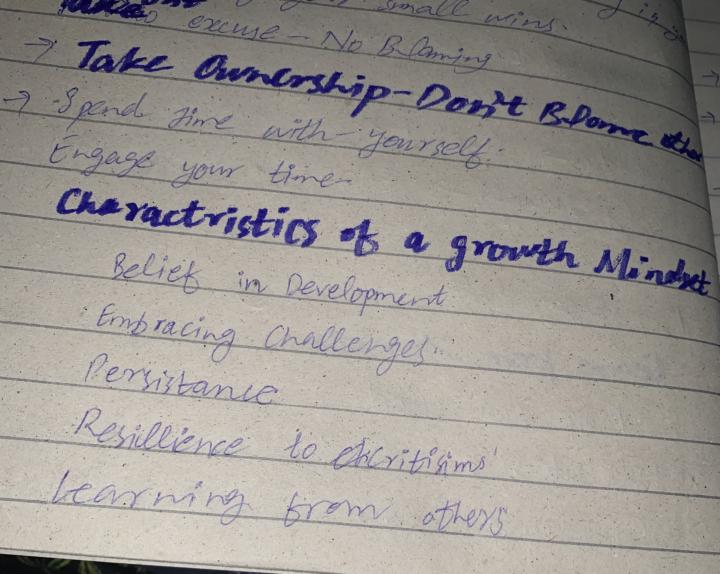 small wins.
excuse - No Blaming
→ Take Ownership - Don't Blame other
→ Spend time with yourself.
Engage your time
Charactristics of a growth Mindset
Belief in Development
Embracing Challenges.
Persistance
Resillience to Critisims
Learning from others